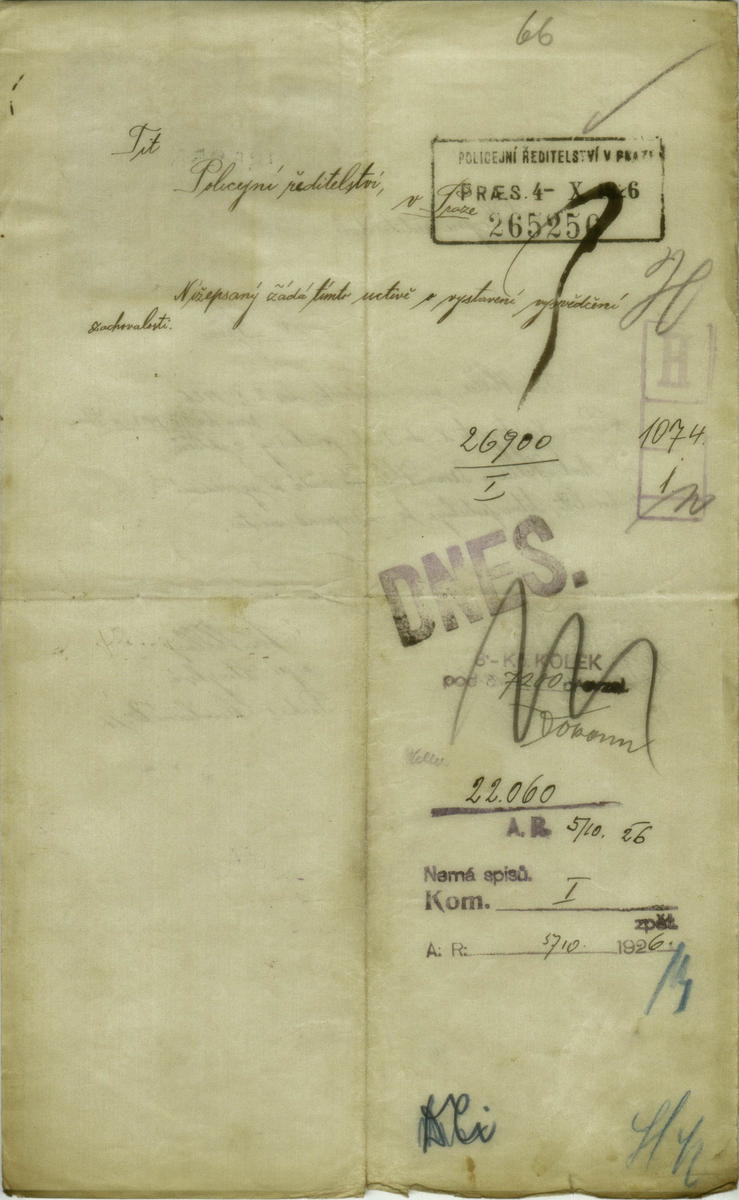 66
Tit
Policejní ředitelství,
v Praze
POLICEJNÍ ŘEDITELSTVÍ V PRAZE
PRÆS. 4- X 1926
265250
Nížepsaný žádá tímto uctivě o vystavení vysvědčení
zachovalosti.
H
H
26900
I
1074.
1
DNES.
8'- Kč KOLEK
pod č. 7200
22.060
A. R. 5/10. 26
Nemá spisů.
Kom. I
zpět.
A: R: 5/10. 1926.